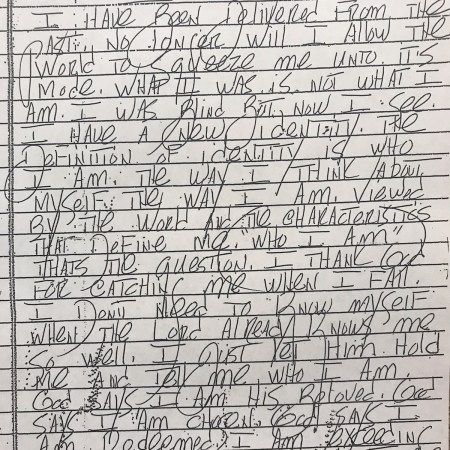 I HAVE BEEN Delivered FROM THE
PAST, NO LONGER Will I Allow THE
WORLD TO SQUEEZE me UNTO IT'S
MODE. WHAT I WAS IS NOT WHAT I
AM. I WAS BLIND BUT NOW I SEE.
I HAVE A NEW IDENTITY. THE
DEFINITION OF IDENTITY IS WHO
I AM. THE WAY I THINK ABOUT
MYSELF. THE WAY I AM VIEWED
BY THE WORLD AND THE CHARACTERISTICS
THAT DEFINE ME. "WHO I AM"
THATS THE QUESTION. I THANK GOD
FOR CATCHING me WHEN I FALL.
I DONT NEED TO KNOW MYSELF
WHEN THE LORD AlREADY KNOWS me
SO WELL. I JUST LET HIM HOLD
ME AND TELL ME WHO I AM.
GOD SAYS I AM HIS BELOVED. GOD
SAYS I AM CHOSEN. GOD SAYS I
AM REDEEMED. I AM